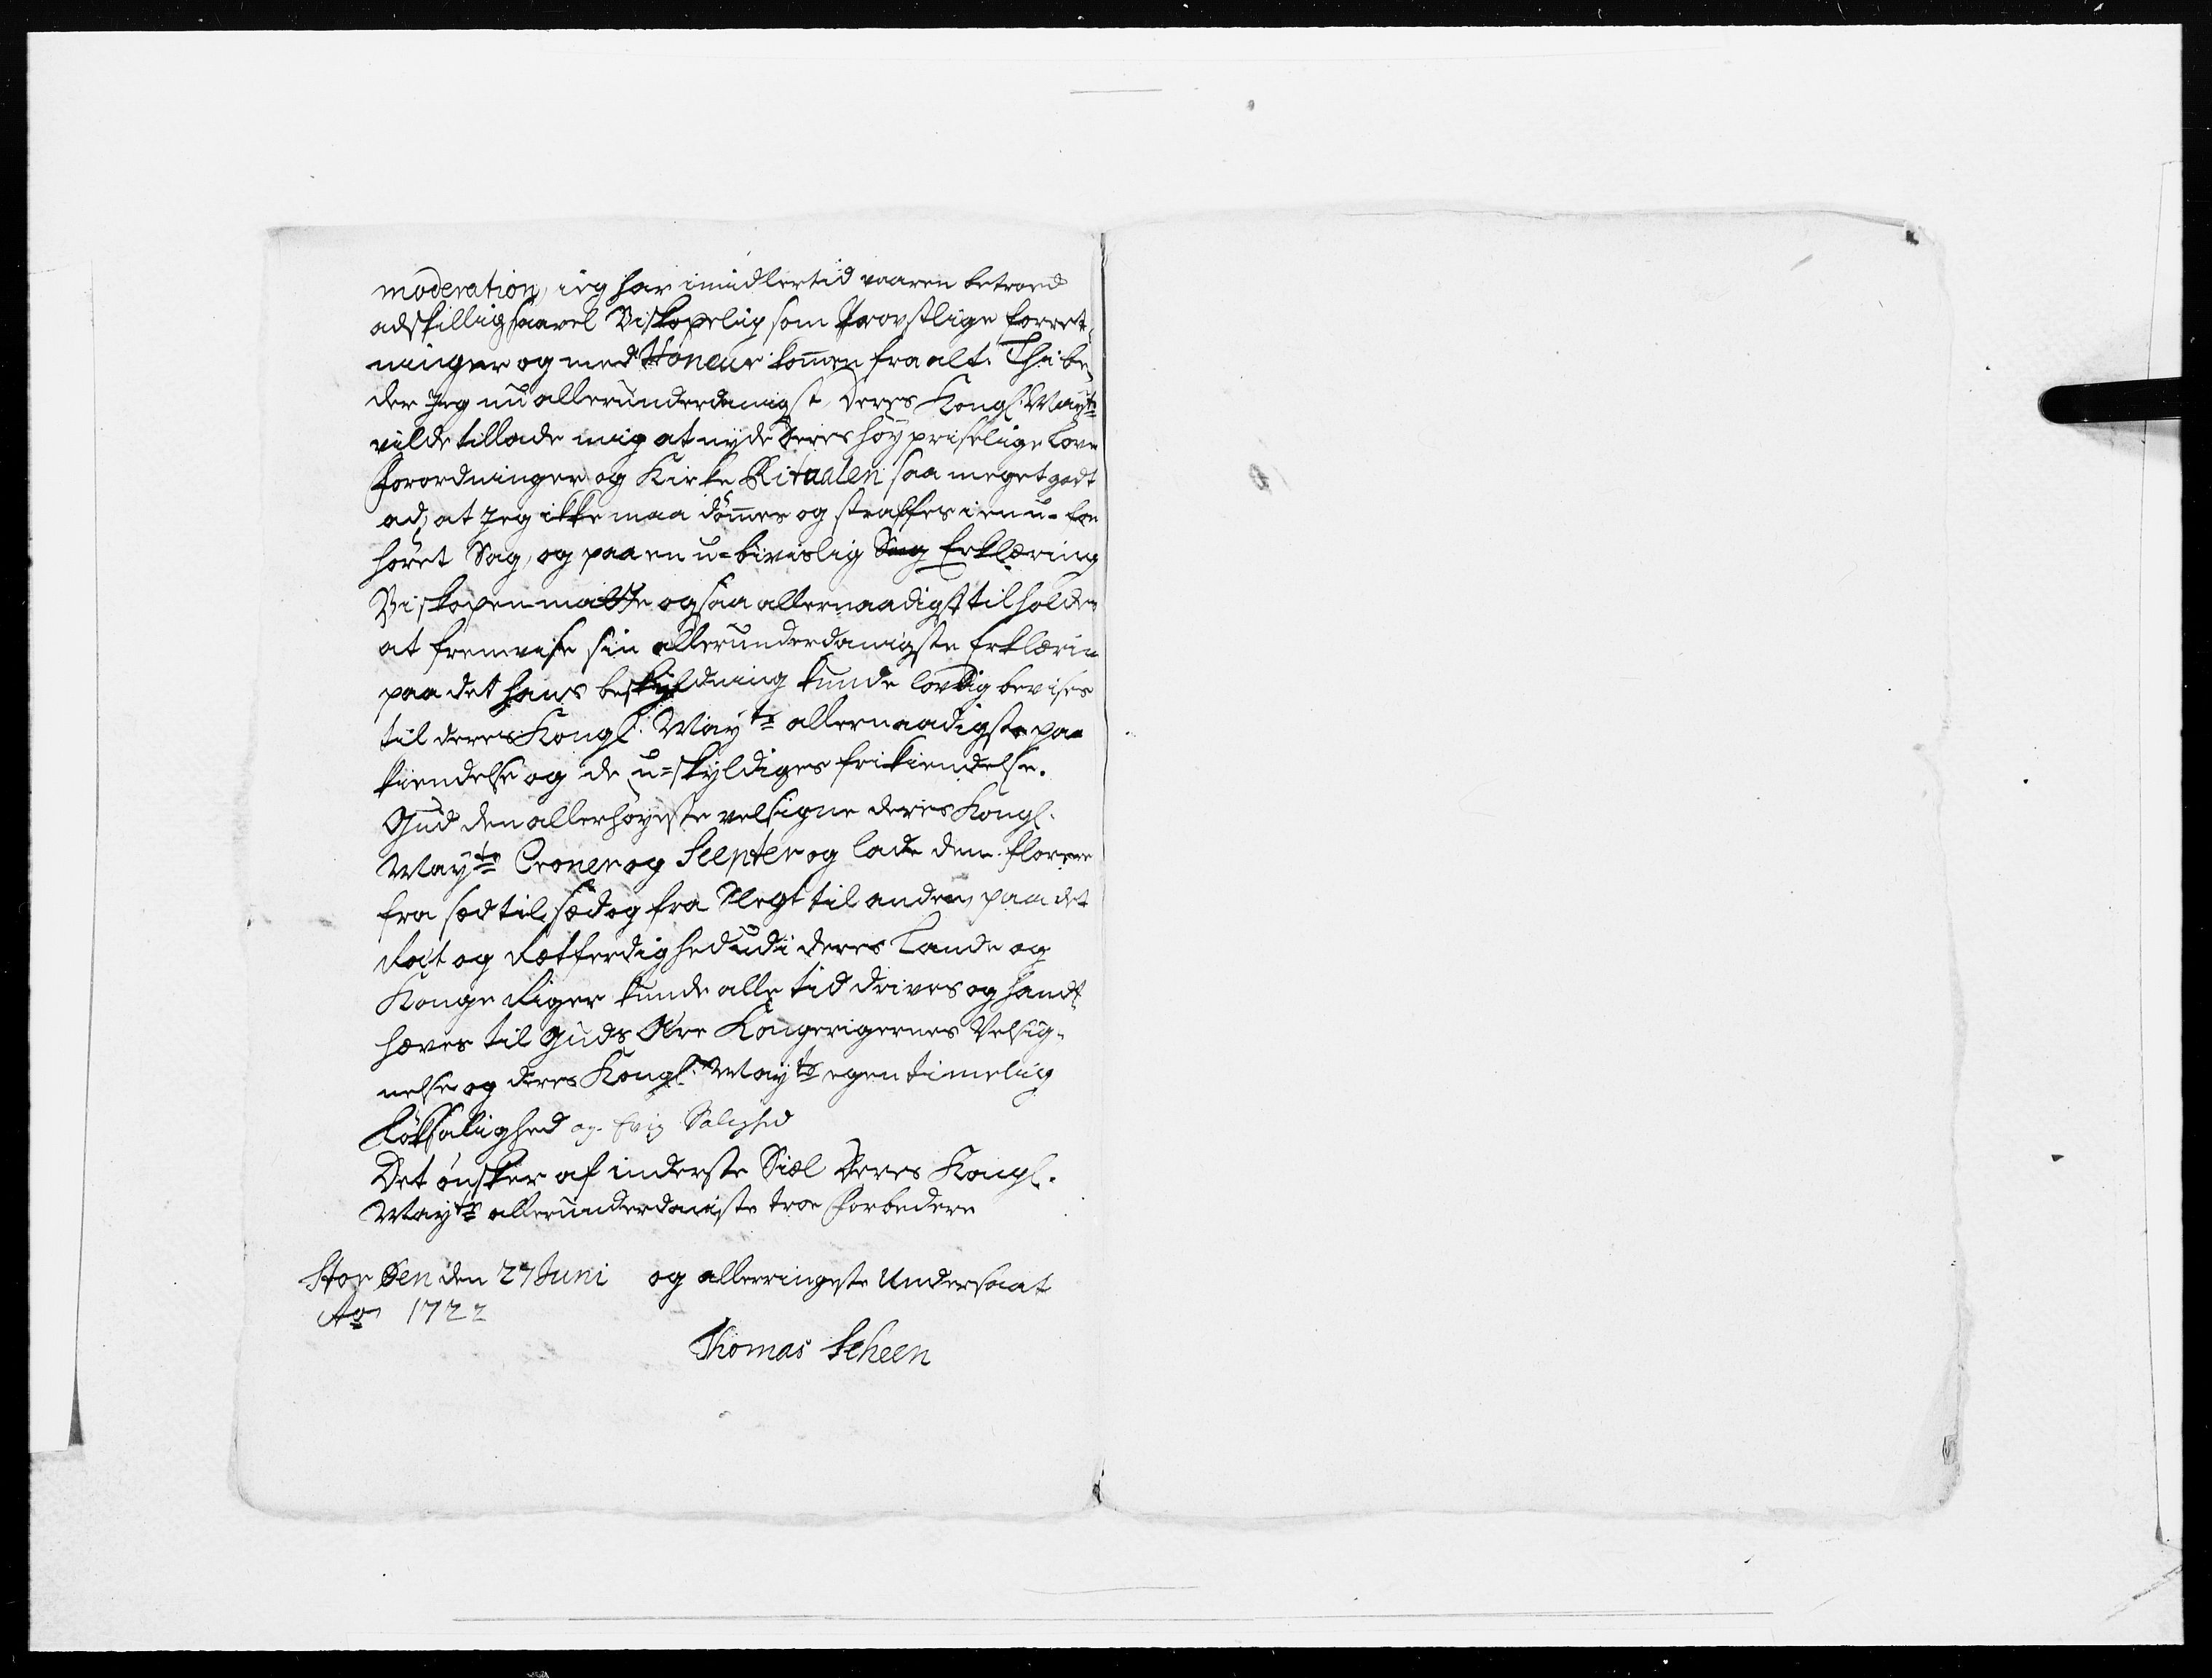 moderation, ieg har imidlertid vaaren betroed
adskillig saavel Biskopelig som Provstlige forret,
ninger og med Honeur komen fra alt. Thi be,
der Jeg nu allerunderdanigst Deres Kongl. Mayts
vilde tillade mig at nyde deres høypriselige Love
Forordninger og Kirke Ritualen saa meget godt
ad, at Jeg ikke maa dømes og straffes i en u-for
høret Sag, og paa en u-bivislig Sag Erklæring
Biskopen matte og saa allernaadigst tilholdes
at fremvise sin allerunderdanigste Erklærin
paa det hans beskyldning kunde lovlig bevises
til deres Kongl. Mayts allernaadigste paa
kiendelse og de u-skyldiges frikiendelse.
Gud den allerhøyeste velsigne deres Kongl.
Mayts Croner og Scepter og lade dem florere
fra sæd til sæd og fra Slegt til anden, paa det
Ræt og Rætferdighed udi deres Lande og
Konge Riger kunde alle tid drives og hand
hæves til Guds Ære Kongerigernes Velsig-
nelse og deres Kongl. Mayts egen timelig
Løksalighed og Evig Salighed
Det ønsker af inderste Siæl Deres Kongl.
Mayts allerunderdanigste troe Forbedere
Stor Øen den 27 Juni og allerringeste Undersaat
Ao 1722
Thomas Scheen